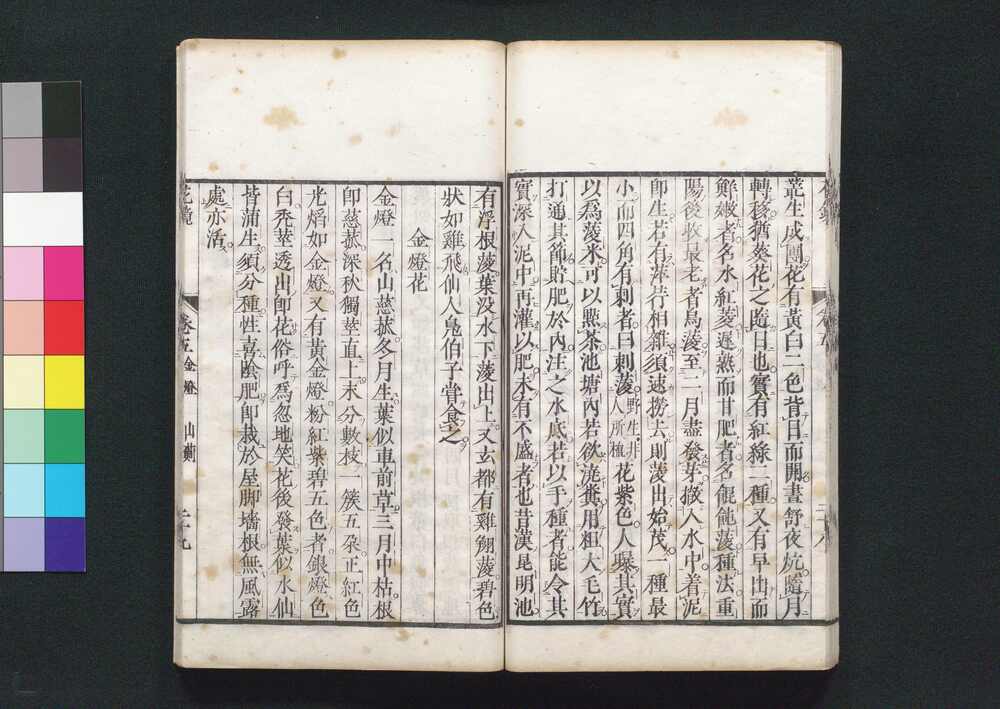 叢生成團花有黃白二色背日而開晝舒夜炕隨月
轉移猶葵花之隨日也實有紅綠二種又有早出而
鮮嫩者名水紅菱遲熟而甘肥者名餛飩菱種法重
陽後收最老者烏菱至二月盡發芽撒入水中着泥
即生若有萍荇相雜須速撈去則菱出始茂一種最
小而四角有刺者曰刺菱野生非人所植花紫色人曝其實
以為菱米可以點茶池塘內若欲澆糞用粗大毛竹
打通其節貯肥於內注之水底若以手種者能令其
實深入泥中再灌以肥未有不盛者也昔漢昆明池
有浮根菱葉没水下菱出上又玄都有雞翔菱碧色
狀如雞飛仙人鳧伯子甞食之
金燈花
金燈一名山慈菰冬月生葉似車前草三月中枯根
即慈菰深秋獨莖直上末分數枝一簇五朶正紅色
光焰如金燈又有黃金燈粉紅紫碧五色者銀燈色
白禿莖透出即花俗呼為忽地笑花後發葉似水仙
皆蒲生須分種性喜陰肥即栽於屋脚墻根無風露
處亦活
花鏡
卷五金燈
二十九